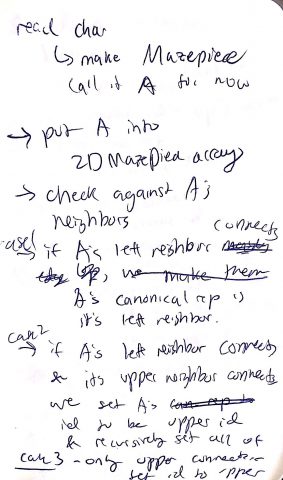 read char
↳ make Mazepiece
call it A for now
→ put A into
2D MazePiece array
→ check against A's
neighbors
case1 connects
→ if A's left neighbor
up, we make them
A's canonical rep is
it's left neighbor.
case 2
→ if A's left neighbor connects
& its upper neighbor connects
we set A's can rep to
id to be upper id
& recursively set all of
case 3 - only upper connects
set id to upper